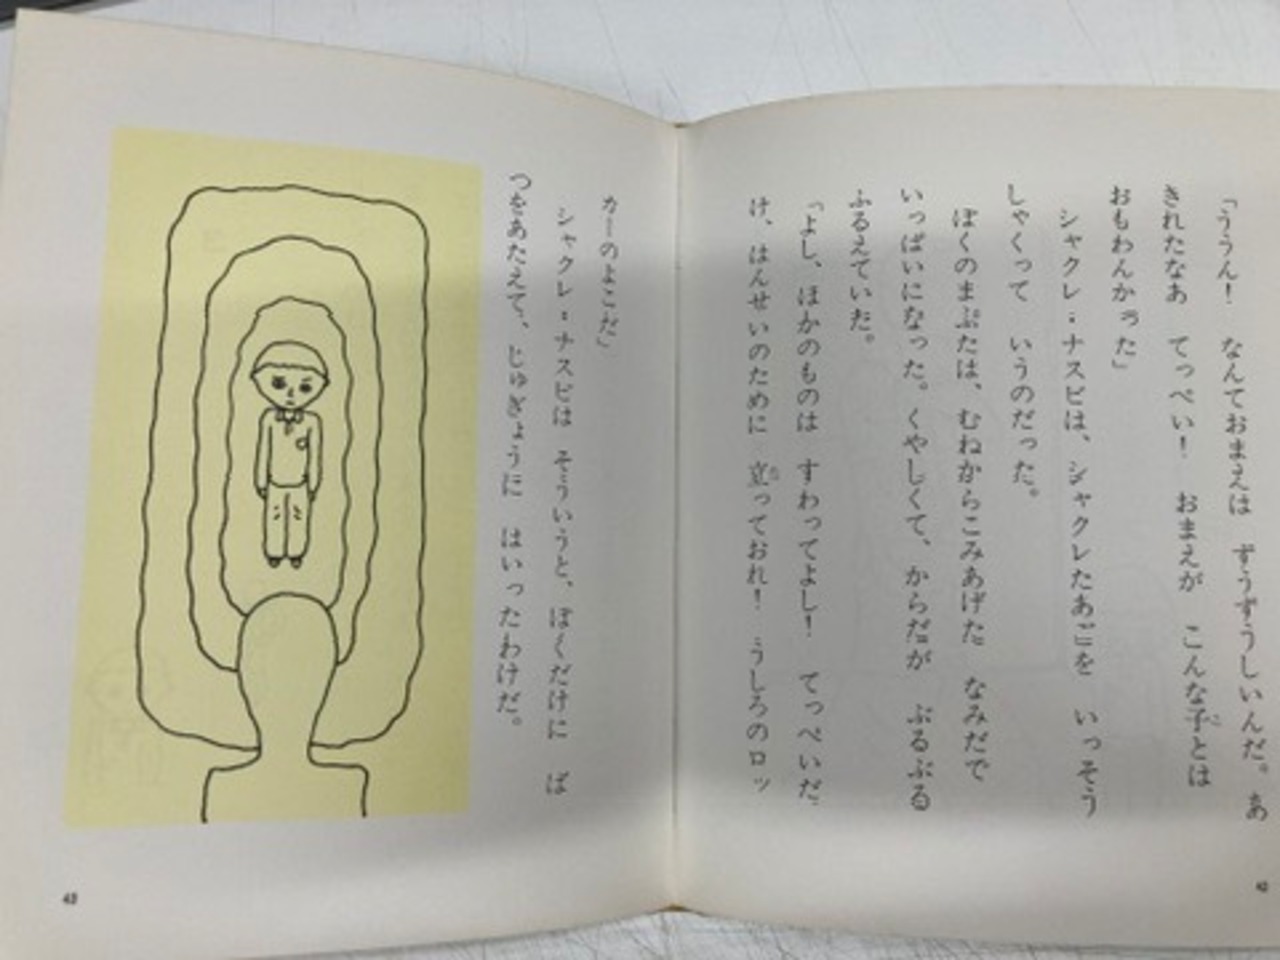 「ううん！　なんておまえは　ずうずうしいんだ。あ
きれたなあ　てっぺい！　おまえが　こんな子とは
おもわんかった」
シャクレ・ナスビは、シャクレたあごを　いっそう
しゃくって　いうのだった。
ぼくのまぶたは、むねからこみあげた　なみだで
いっぱいになった。くやしくて、からだが　ぶるぶる
ふるえていた。
「よし、ほかのものは　すわってよし！　てっぺいだ
け、はんせいのために　立っておれ！　うしろのロッ
カーのよこだ」
シャクレ・ナスビは　そういうと、ぼくだけに　ば
つをあたえて、じゅぎょうに　はいったわけだ。
42
43